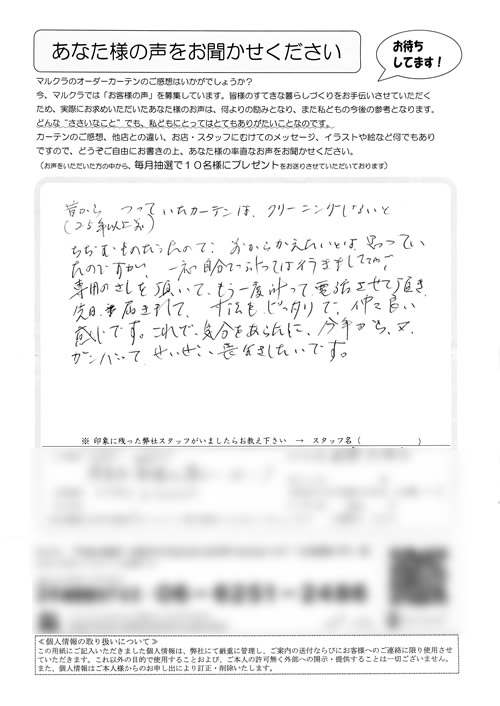 あなた様の声をお聞かせください
お待ち
してます！
マルクラのオーダーカーテンのご感想はいかがでしょうか？
今、マルクラでは「お客様の声」を募集しています。皆様のすてきな暮らしづくりをお手伝いさせていただく
ため、実際にお求めいただいたあなた様のお声は、何よりの励みとなり、また私どもの今後の参考となります。
どんな“ささいなこと”でも、私どもにとってはとてもありがたいことなのです。
カーテンのご感想、他店との違い、お店・スタッフにむけてのメッセージ、イラストや絵など何でもあり
ですので、どうぞご自由にお書きの上、あなた様の率直なお声をお聞かせください。
（お声をいただいた方の中から、毎月抽選で１０名様にプレゼントをお送りさせていただいております）
昔から つっていたカーテンは、クリーニングしないと
(25年以上前)
ちぢむものだったので、 かえたいとは思ってい
たのですが、一応自分で はかっては行きましたが
専用のさしを頂いて、もう一度計って電話させて頂き、
先日 届きまして、サイズもピッタリで、仲々良い
感じです。これで、気分をあらたに、今年から、又、
ガンバって、せいぜい長生きしたいです。
※ 印象に残った弊社スタッフがいましたらお教え下さい → スタッフ名（ ）
06-6251-2486
≪個人情報の取り扱いについて≫
この用紙にご記入いただきました個人情報は、弊社にて厳重に管理し、ご案内の送付ならびにお客様へのご連絡に限り使用させ
ていただきます。これ以外の目的で使用することおよび、ご本人の許可無く外部への開示・提供することは一切ございません。
また、個人情報はご本人様からのお申し出により訂正・削除いたします。